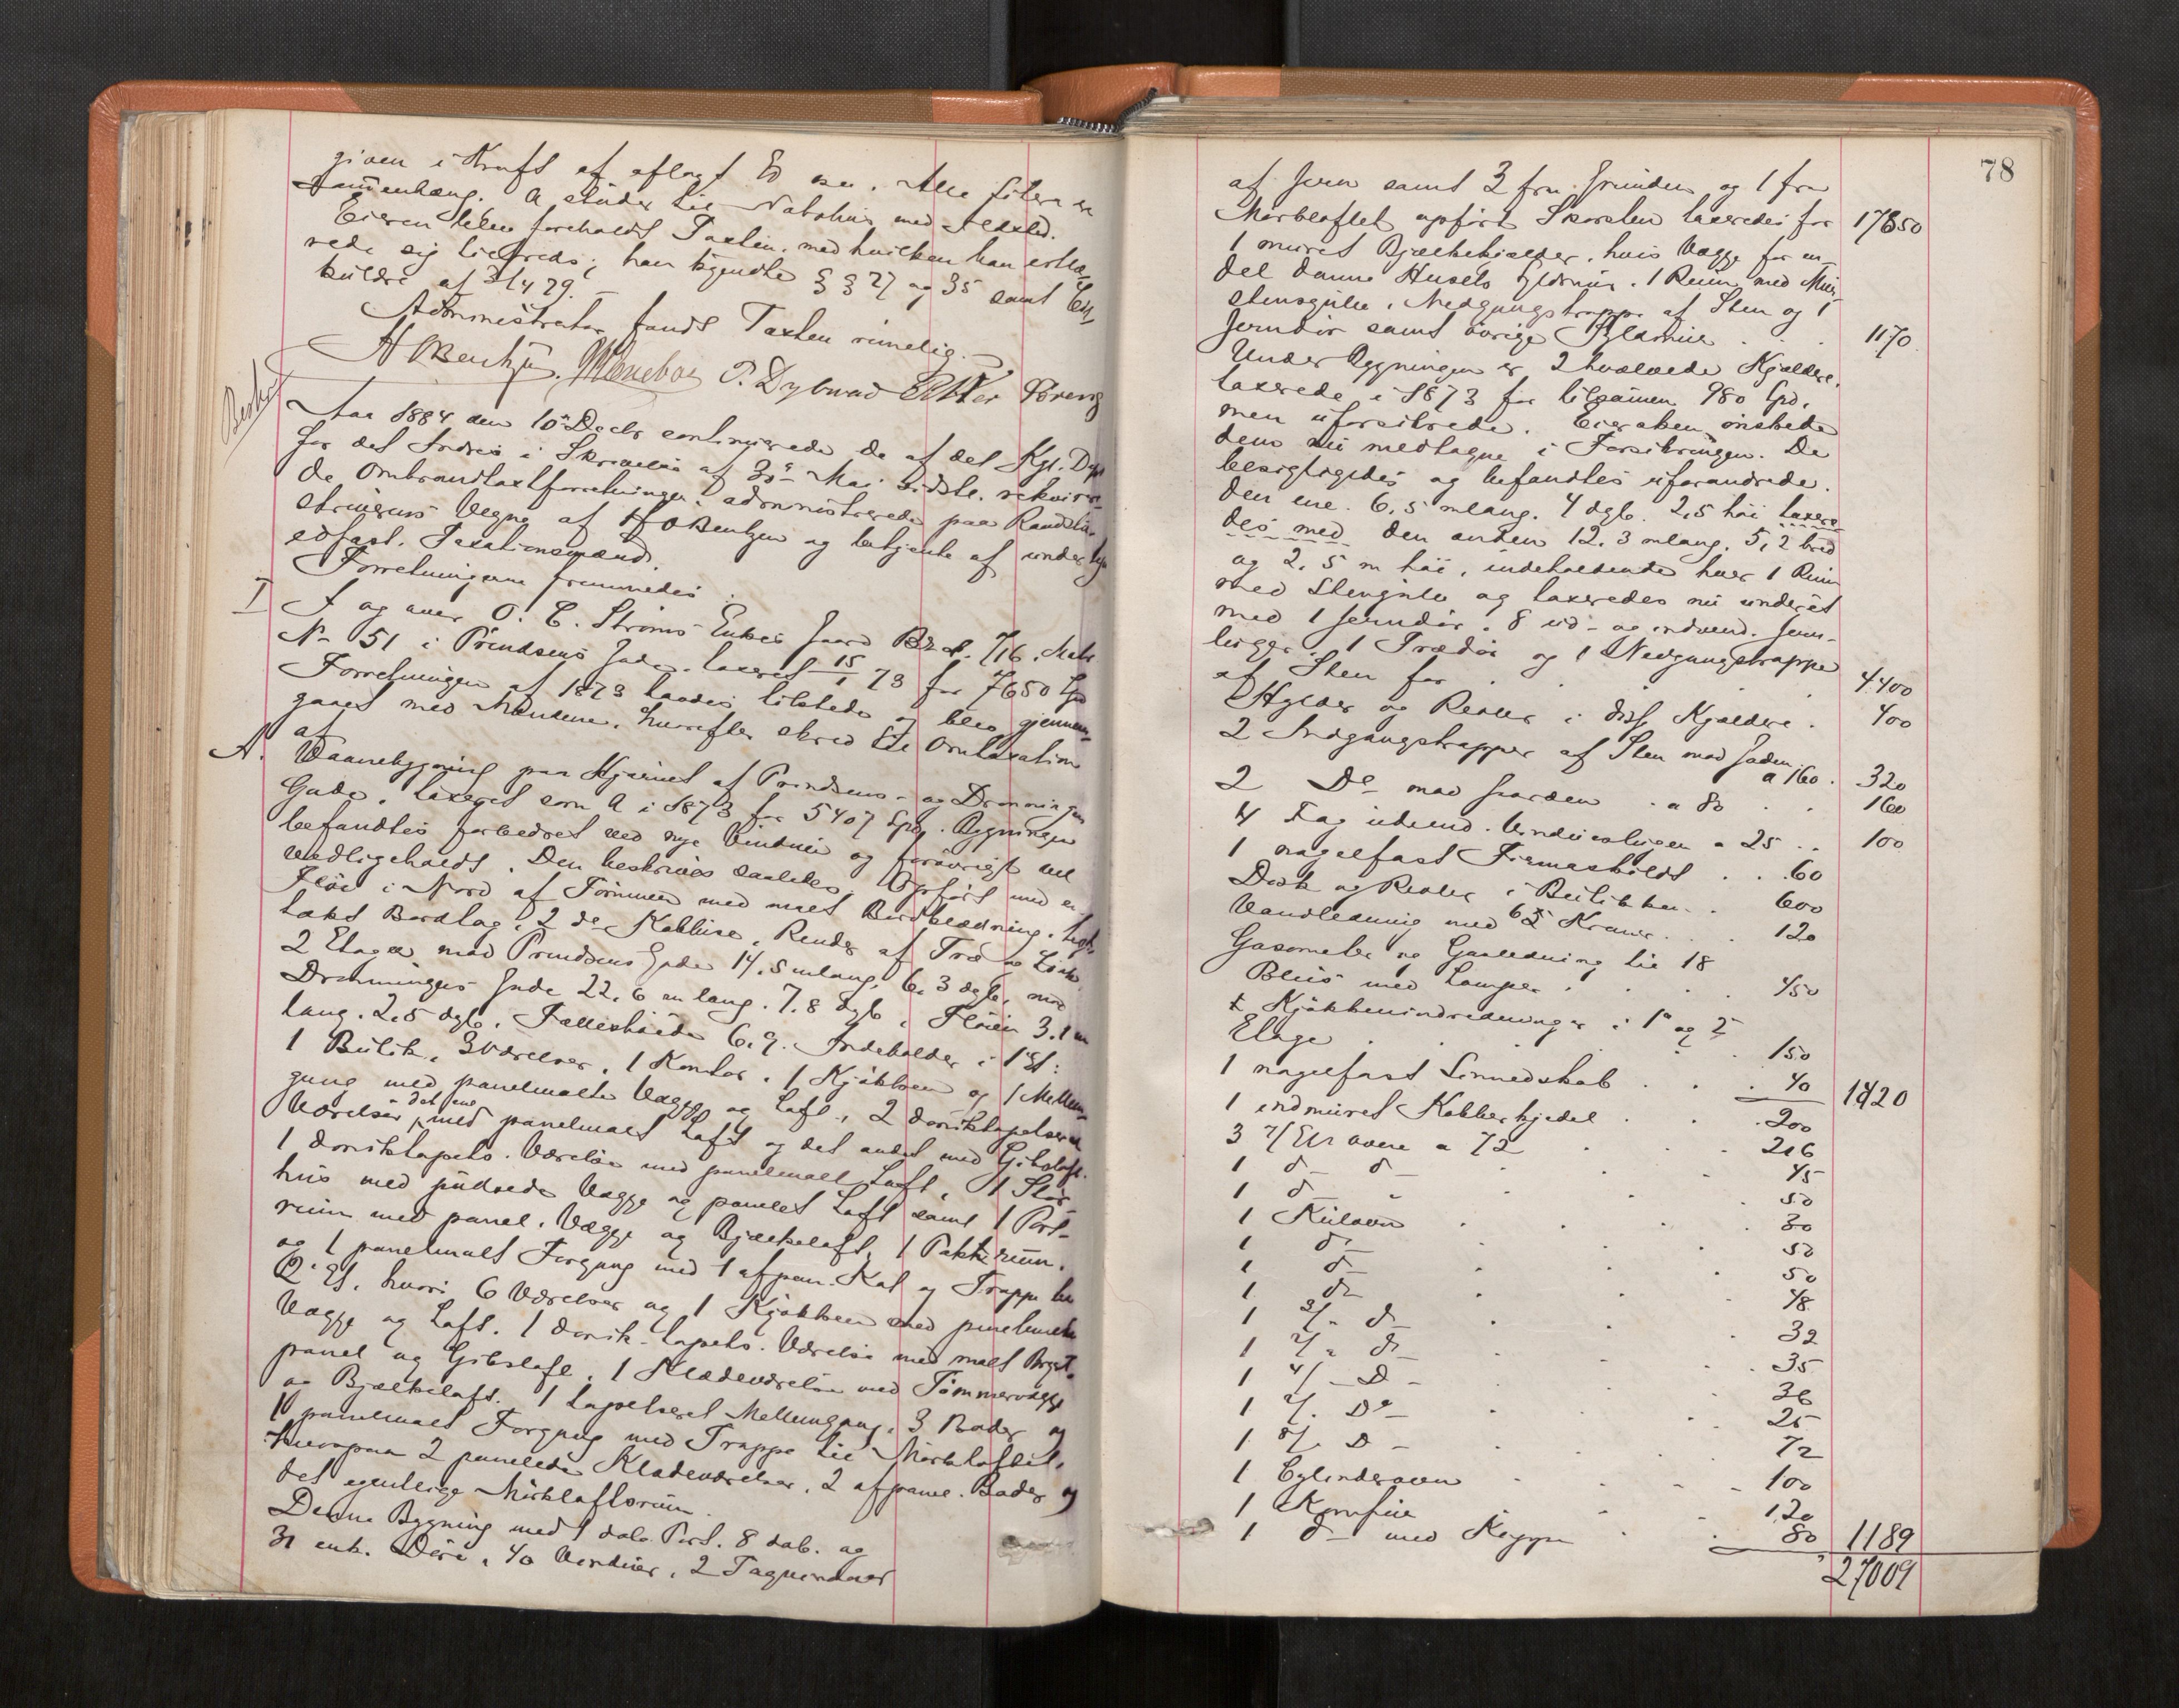 given i Kraft af aflagt Ed osv. Alle Litera er
sammenhæng. A støder til Nabohus med
Eieren blev foreholdt Taxten, med hvilken han erklæ-
rede sig tilfreds; han kjendte § § 27 og 35 samt
af 3/4 29.
Administrator fandt Taxten rimelig.
P. Dybwad
Aar 1884 den 10de Decbr continuerede de af det Kgl. Dept
for det Indre i Skrivelse af 30te Mai sidstl. rekvirere-
de Ombrandtaxtforretninger, administrerede paa
Vegne af H O Bentzen og betjente af
edfast. Taxationsmænd.
Forretningerne fremmedes:
I
I og over O. C. Strøms Enkes Gaard Br. 716. Matr
No 51 i Prindsens Gade, taxeret 15/1 73 for 7650 Spd
Forretningen af 1873 havdes tilstede og blev gjennem-
gaaet med Mændene, hvorefter skred til Omtaxation
af
A. Vaanebygning paa Hjørnet af Prindsens- og Dronningens
Gade, taxeret som A i 1873 for 5407 Spd. Bygningen
befandtes forbedret ved nye Vinduer og forøvrigt vel
vedligeholdt. Den beskrives saaledes: Opført med en
Fløi i Nord af Tømmer med malt Bordklædning,
lakt Bordtag, 2 do Kobbhuse, Render af Træ og
2 Etager mod Prindsens Gade 14.5 m lang, 6.3 dyb, mod
Dronningens Gade 22.6 m lang. 7.8 dyb, Fløien 3.1 m
lang. 2.5 dyb, Fælleshøide 6.9. Indeholder i 1ste Et:
1 Butik, 3 Værelser, 1 Kontor, 1 Kjøkken og 1 Mellem-
gang med panelmalte Vægge og Loft, 2 dorsktapetserede
Værelser det ene med panelmalt Loft og det andet med Gibsloft.
1 dorsktapets. Værelse med panelmalt Loft,
hus med pudsede Vægge og panelet Loft samt 1 Port-
rum med panel. Vægge og Bjælkeloft, 1 Pakkerum,
og 1 panelmalt Forgang med 1 afpan. Kot og Trappe til
2. Et. hvori 6 Værelser og 1 Kjøkken med panelmalte
Vægge og Loft. 1 dorsk-tapets. Værelse med malt Bryst-
panel og Gibsloft, 1 Klædeværelse med Tømmervægge
og Bjælkeloft. 1 tapetseret Mellemgang, 3 Boder og
1 panelmalt Forgang med Trappe til Mørkloftet,
hvorpaa 2 panelede Klædeværelser, 2 afpanel. Boder og
det egentlige Mørkloftsrum.
Denne Bygning med 1 dob. Port. 8 dob. og
31 enk. Døre, 40 Vinduer, 2 Tagvinduer
78
af Jern samt 3 fra Grunden og 1 fra
Mørkloftet opført Skorsten taxeredes for 17650
1 muret Bjælkekjælder, hvis Vægge for en-
del danne Husets Fyldmur. 1 Rum med Mur-
stensgulv, Nedgangstrappe af Sten og 1
Jerndør samt øvrige Fyldmure . . . 1170
Under Bygningen er 2 hvælvede Kjældere,
taxerede i 1873 for tilsammen 980 Spd,
men uforsikrede. Eiersken ønskede
dem nu medtagne i Forsikringen. De
besigtigedes og befandtes uforandrede.
Den ene 6.5 m lang. 4 dyb. 2.5 høi taxere-
des med den anden 12.3 m lang, 5,2 bred
og 2.5 m høi, indeholdende hver 1 Rum
med Stengulv og taxeredes nu underét
med 1 Jerndør, 8 ud- og indvend. Jern-
1 Trædør og 1 Nedgangstrappe
af Sten for . . . . 4400
Hylder og Reoler i diss. Kjældere . 400
2 Indgangstrapper af Sten mod Gaden
a 160 . 320
2 Do mod Gaarden . a 80 . . 160
4 Fag udvend. Vinduesluger a 25 . . 100
1 nagelfast Firmaskildt . . . 60
Disk og Reoler i Butikken . . 600
Vandledning med 6 Kraner . . . 120
Gasometer og Gasledning til 18
Blus med Lamper . . . . 450
Kjøkkenindredninger i 1ste og 2den
Etage . . . . . 150
1 nagelfast Linnedskab . . . 40 1420
1 indmuret Kobberkjedel . . 200
3 Et Ovne a 72 . . . 216
1 do do . . . 45
1 do . . . 50
1 Kulovn . . . 30
1 do . . . 50
1 do . . . 50
1 do . . . 48
1 do . . . 32
1 do . . . 35
1 Do . . . 36
1 Do . . . 25
1 Do . . . 72
1 Cylinderovn . . . 100
1 Komfur . . . 120
1 do med Kappe . . 80 1189
27009